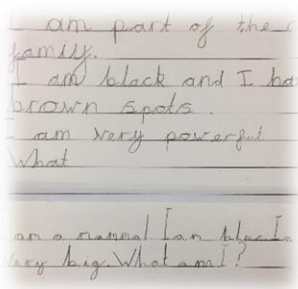 I am part of the c
family.
I am black and I ha
brown spots.
I am very powerful
What
am a mammal I am black I
very big. What am I?